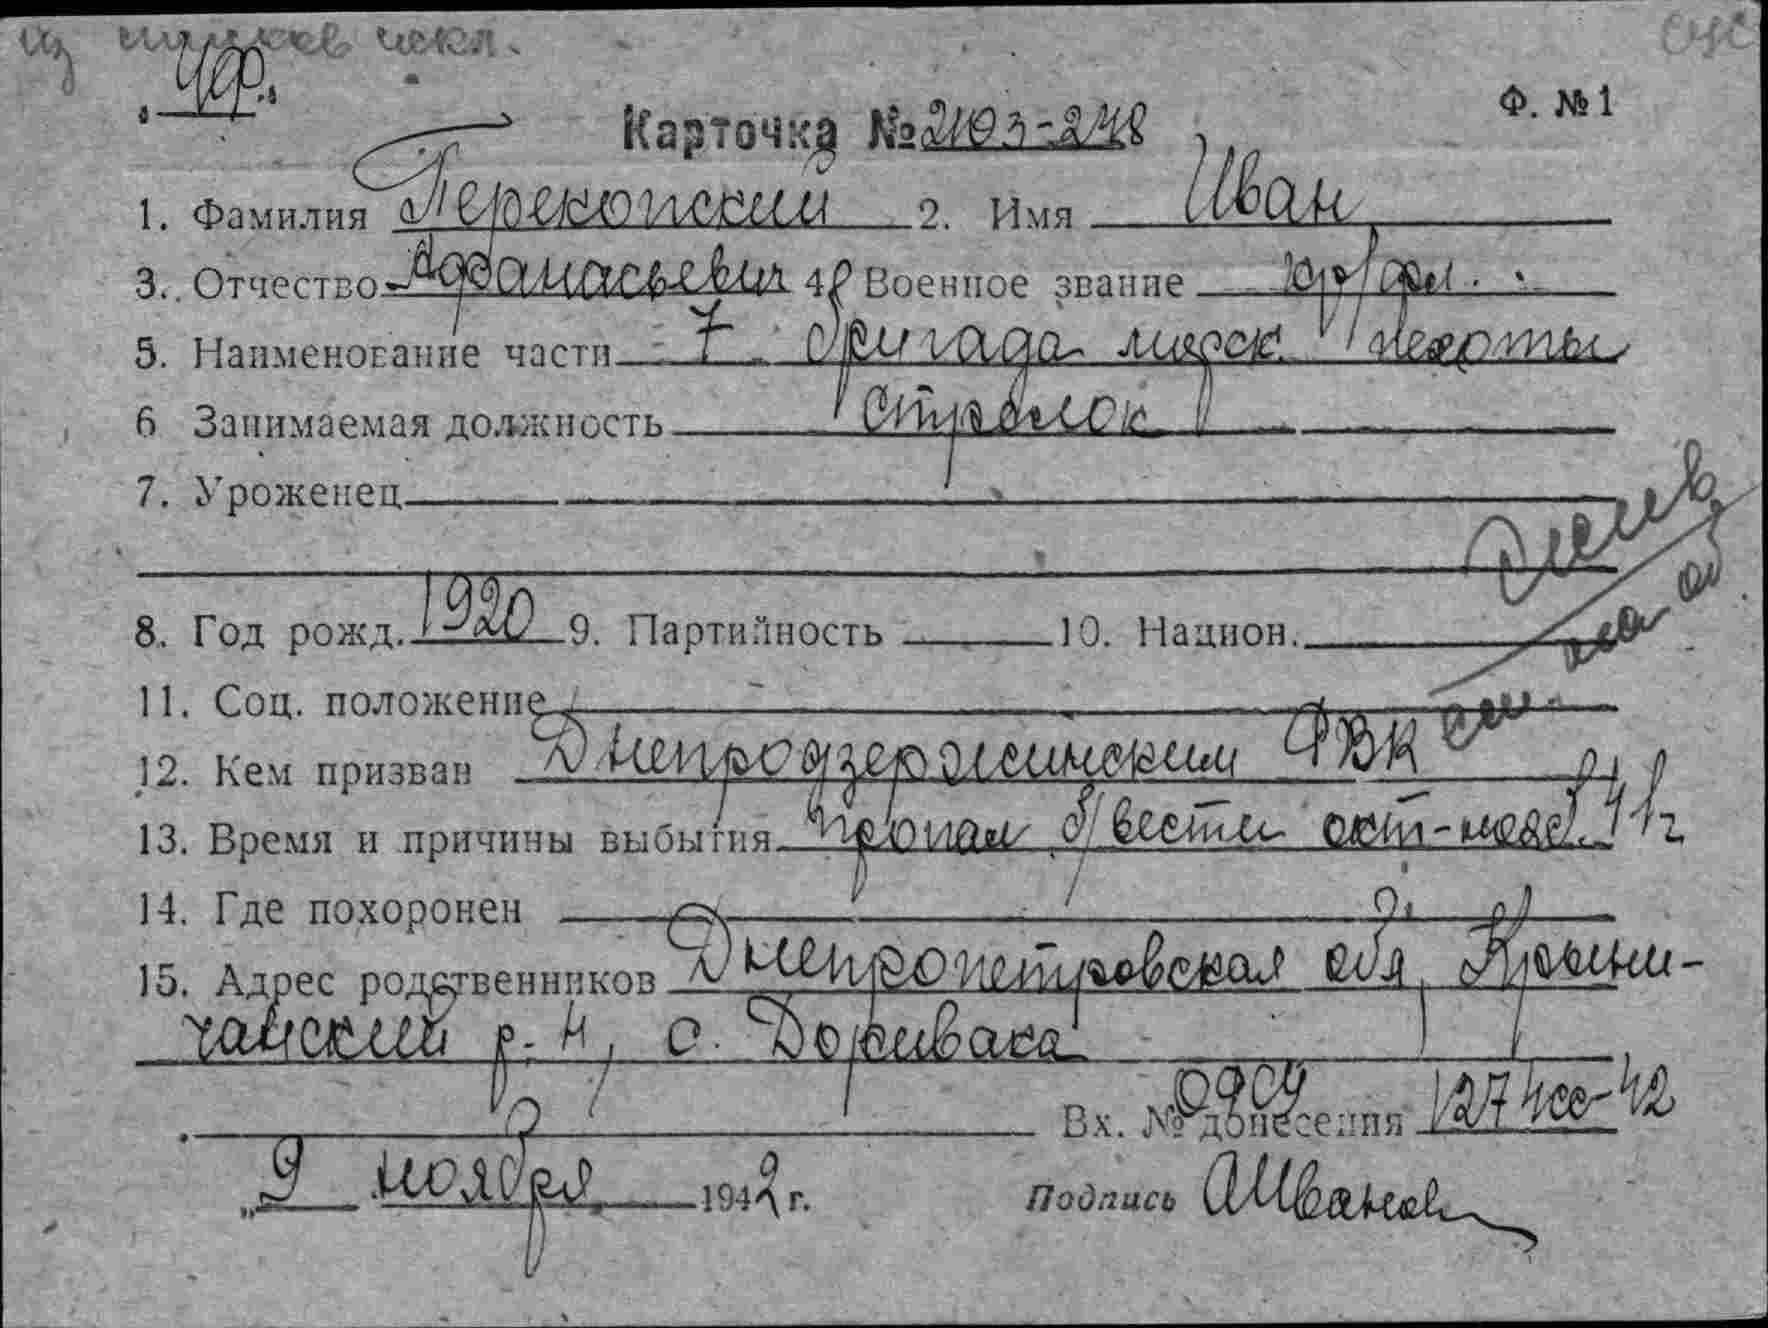 из списков искл.
Ф. №1
Карточка № 2103-248
1. Фамилия Перекопский 2. Имя Иван
3. Отчество Афанасьевич 4. Военное звание кр/фл.
5. Наименование части 7 бригада морск пехоты
6 Занимаемая должность стрелок
7. Уроженец
8. Год рожд. 1920 9. Партийность 10. Национ.
11. Соц. положение
12. Кем призван Днепродзержинским РВК
13. Время и причины выбытия пропал б/вести окт-нояб. 41г
14. Где похоронен
15. Адрес родственников Днепропетровская обл, Крини-
чанский р-н, с.
Вх. № донесения 1274сс-42
„9 ноября 1942 г. Подпись АИванов